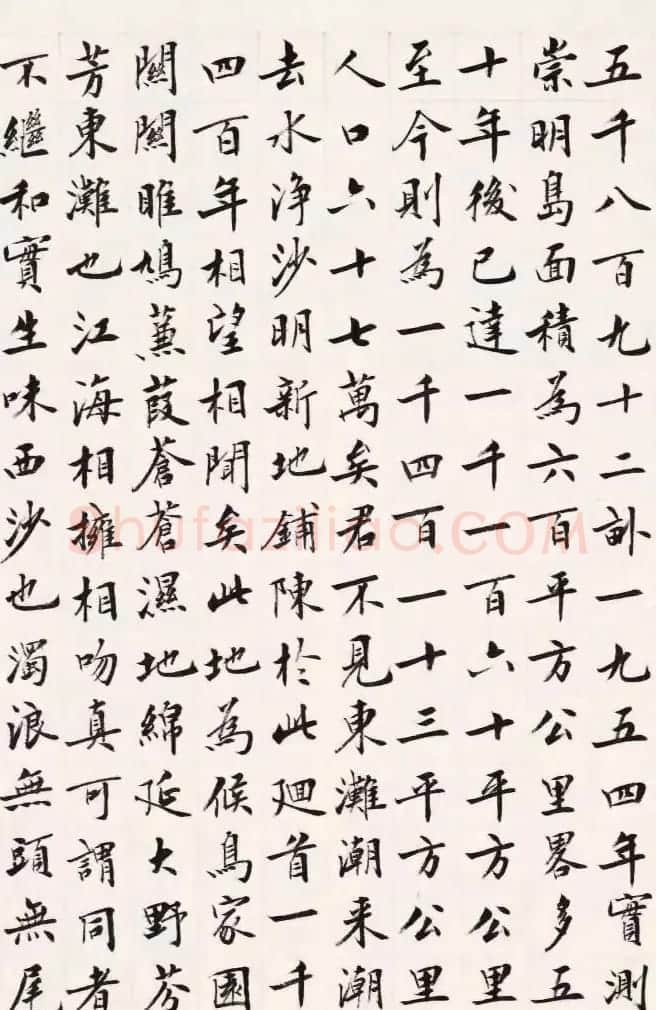 五千八百九十二畝一九五四年實測
崇明島面積為六百平方公里畧多五
十年後已達一千一百六十平方公里
至今則為一千四百一十三平方公里
人口六十七萬矣君不見東灘潮来潮
去水淨沙明新地鋪陳於此廻首一千
四百年相望相聞矣此地為候鳥家園
關關雎鳩蒹葭蒼蒼濕地綿延大野芬
芳東灘也江海相擁相吻真可謂同者
不繼和實生味西沙也濁浪無頭無尾
Shufaziliao.COM